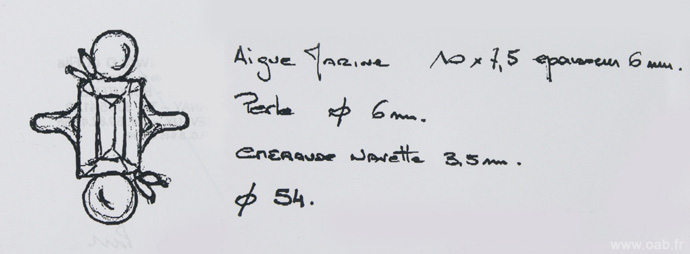 Aigue Marine 10 x 7,5 epaisseur 6 mm.
Perle φ 6 mm.
emeraude navette 3,5 mm.
φ 54.
www.oab.fr